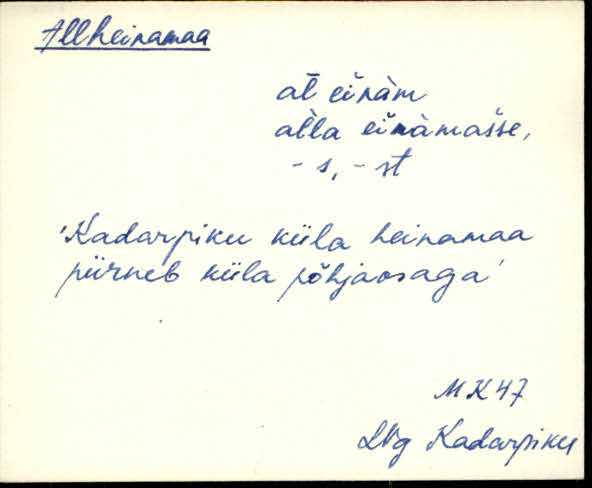 Allheinamaa
at̄ eìnàm
alla eìnàmasse,
- s, - st
'Kadarpiku küla heinamaa
piirneb küla põhjaosaga'
MK 47
LNg Kadarpiku